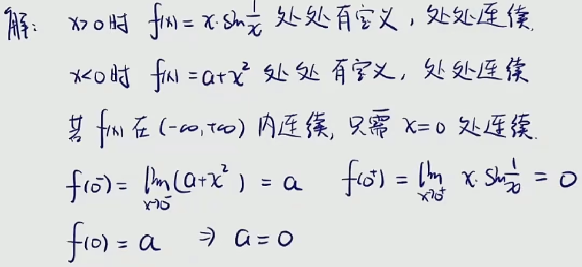 解: x>0时 f(x)=x·sin 1/x 处处有定义，处处连续.
x<0时 f(x)=a+x² 处处有定义，处处连续
若 f(x)在(-∞,+∞)内连续, 只需 x=0 处连续.
f(0⁻)=lim x→0⁻ (a+x²)=a f(0⁺)=lim x→0⁺ x·sin 1/x=0
f(0)=a ⇒ a=0